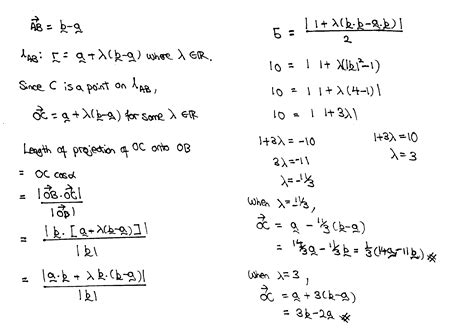 AB = b-a
l_AB: r = a + λ(b-a) where λ ∈ ℝ.
Since C is a point on l_AB,
OC = a + λ(b-a) for some λ ∈ ℝ
Length of projection of OC onto OB
= OC cosα
= |OB·OC| / |OB|
= |b·[a+λ(b-a)]| / |b|
= |a·b + λb·(b-a)| / |b|
5 = |1+λ(b·b-a·b)| / 2
10 = |1+λ(|b|²-1)|
10 = |1+λ(4-1)|
10 = |1+3λ|
1+3λ = -10 1+3λ = 10
3λ = -11 λ = 3
λ = -11/3
When λ = -11/3,
OC = a - 11/3(b-a)
= 14/3a - 11/3b = 1/3(14a-11b) ※
When λ = 3,
OC = a + 3(b-a)
= 3b-2a ※